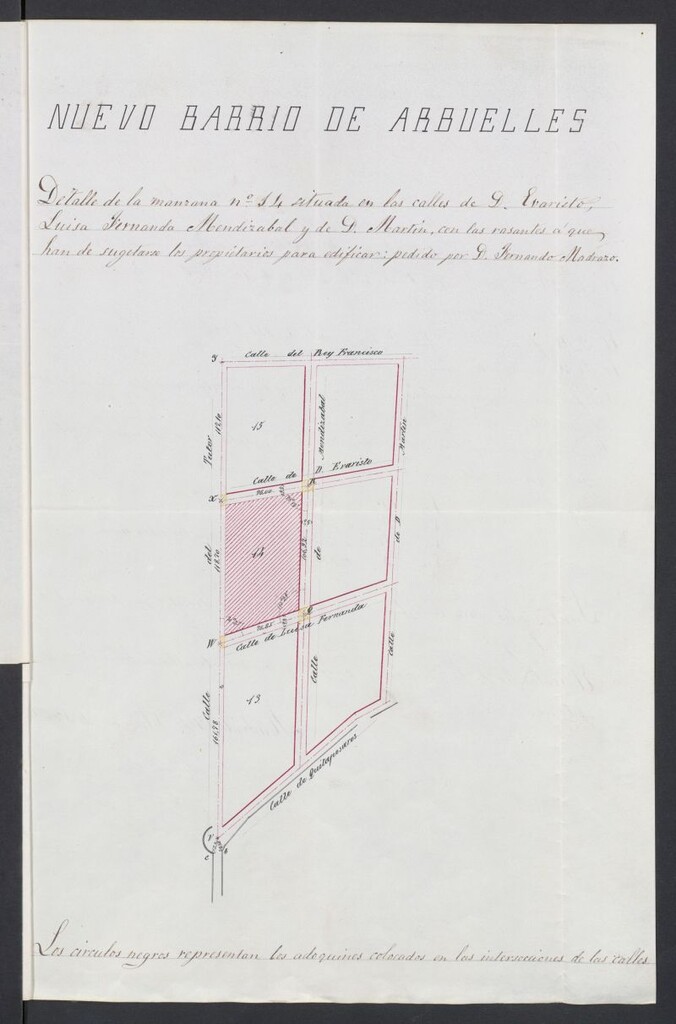 NUEVO BARRIO DE ARBUELLES
Detalle de la manzana nº 14 situada en las calles de D. Evaristo,
Luisa Fernanda Mendizabal y de D. Martin, con las rasantes á que
han de sugetarse los propietarios para edificar: pedido por D. Fernando Madrazo.
Y
Calle del Rey Francisco
15
Mendizabal
Martin
Tutor
Calle de D. Evaristo
X
14
del
118,70
de
de D
W
Calle de Luisa Fernanda
13
Calle
161,78
Calle
Calle
Calle de Quitapesares
V
C
Los circulos negros representan los adoquines colocados en las intersecciones de las calles.